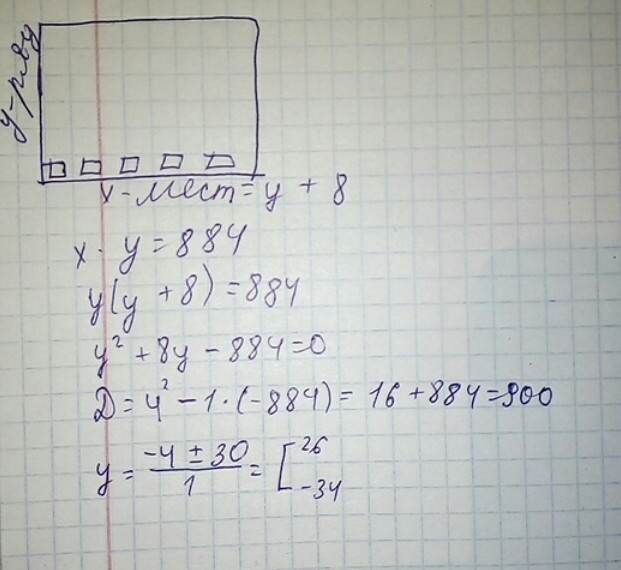 y-ряд
x - мест = y + 8
x · y = 884
y(y + 8) = 884
y² + 8y - 884 = 0
D = 4² - 1 · (-884) = 16 + 884 = 900
y = (-4 ± 30)/1 = [26 -34